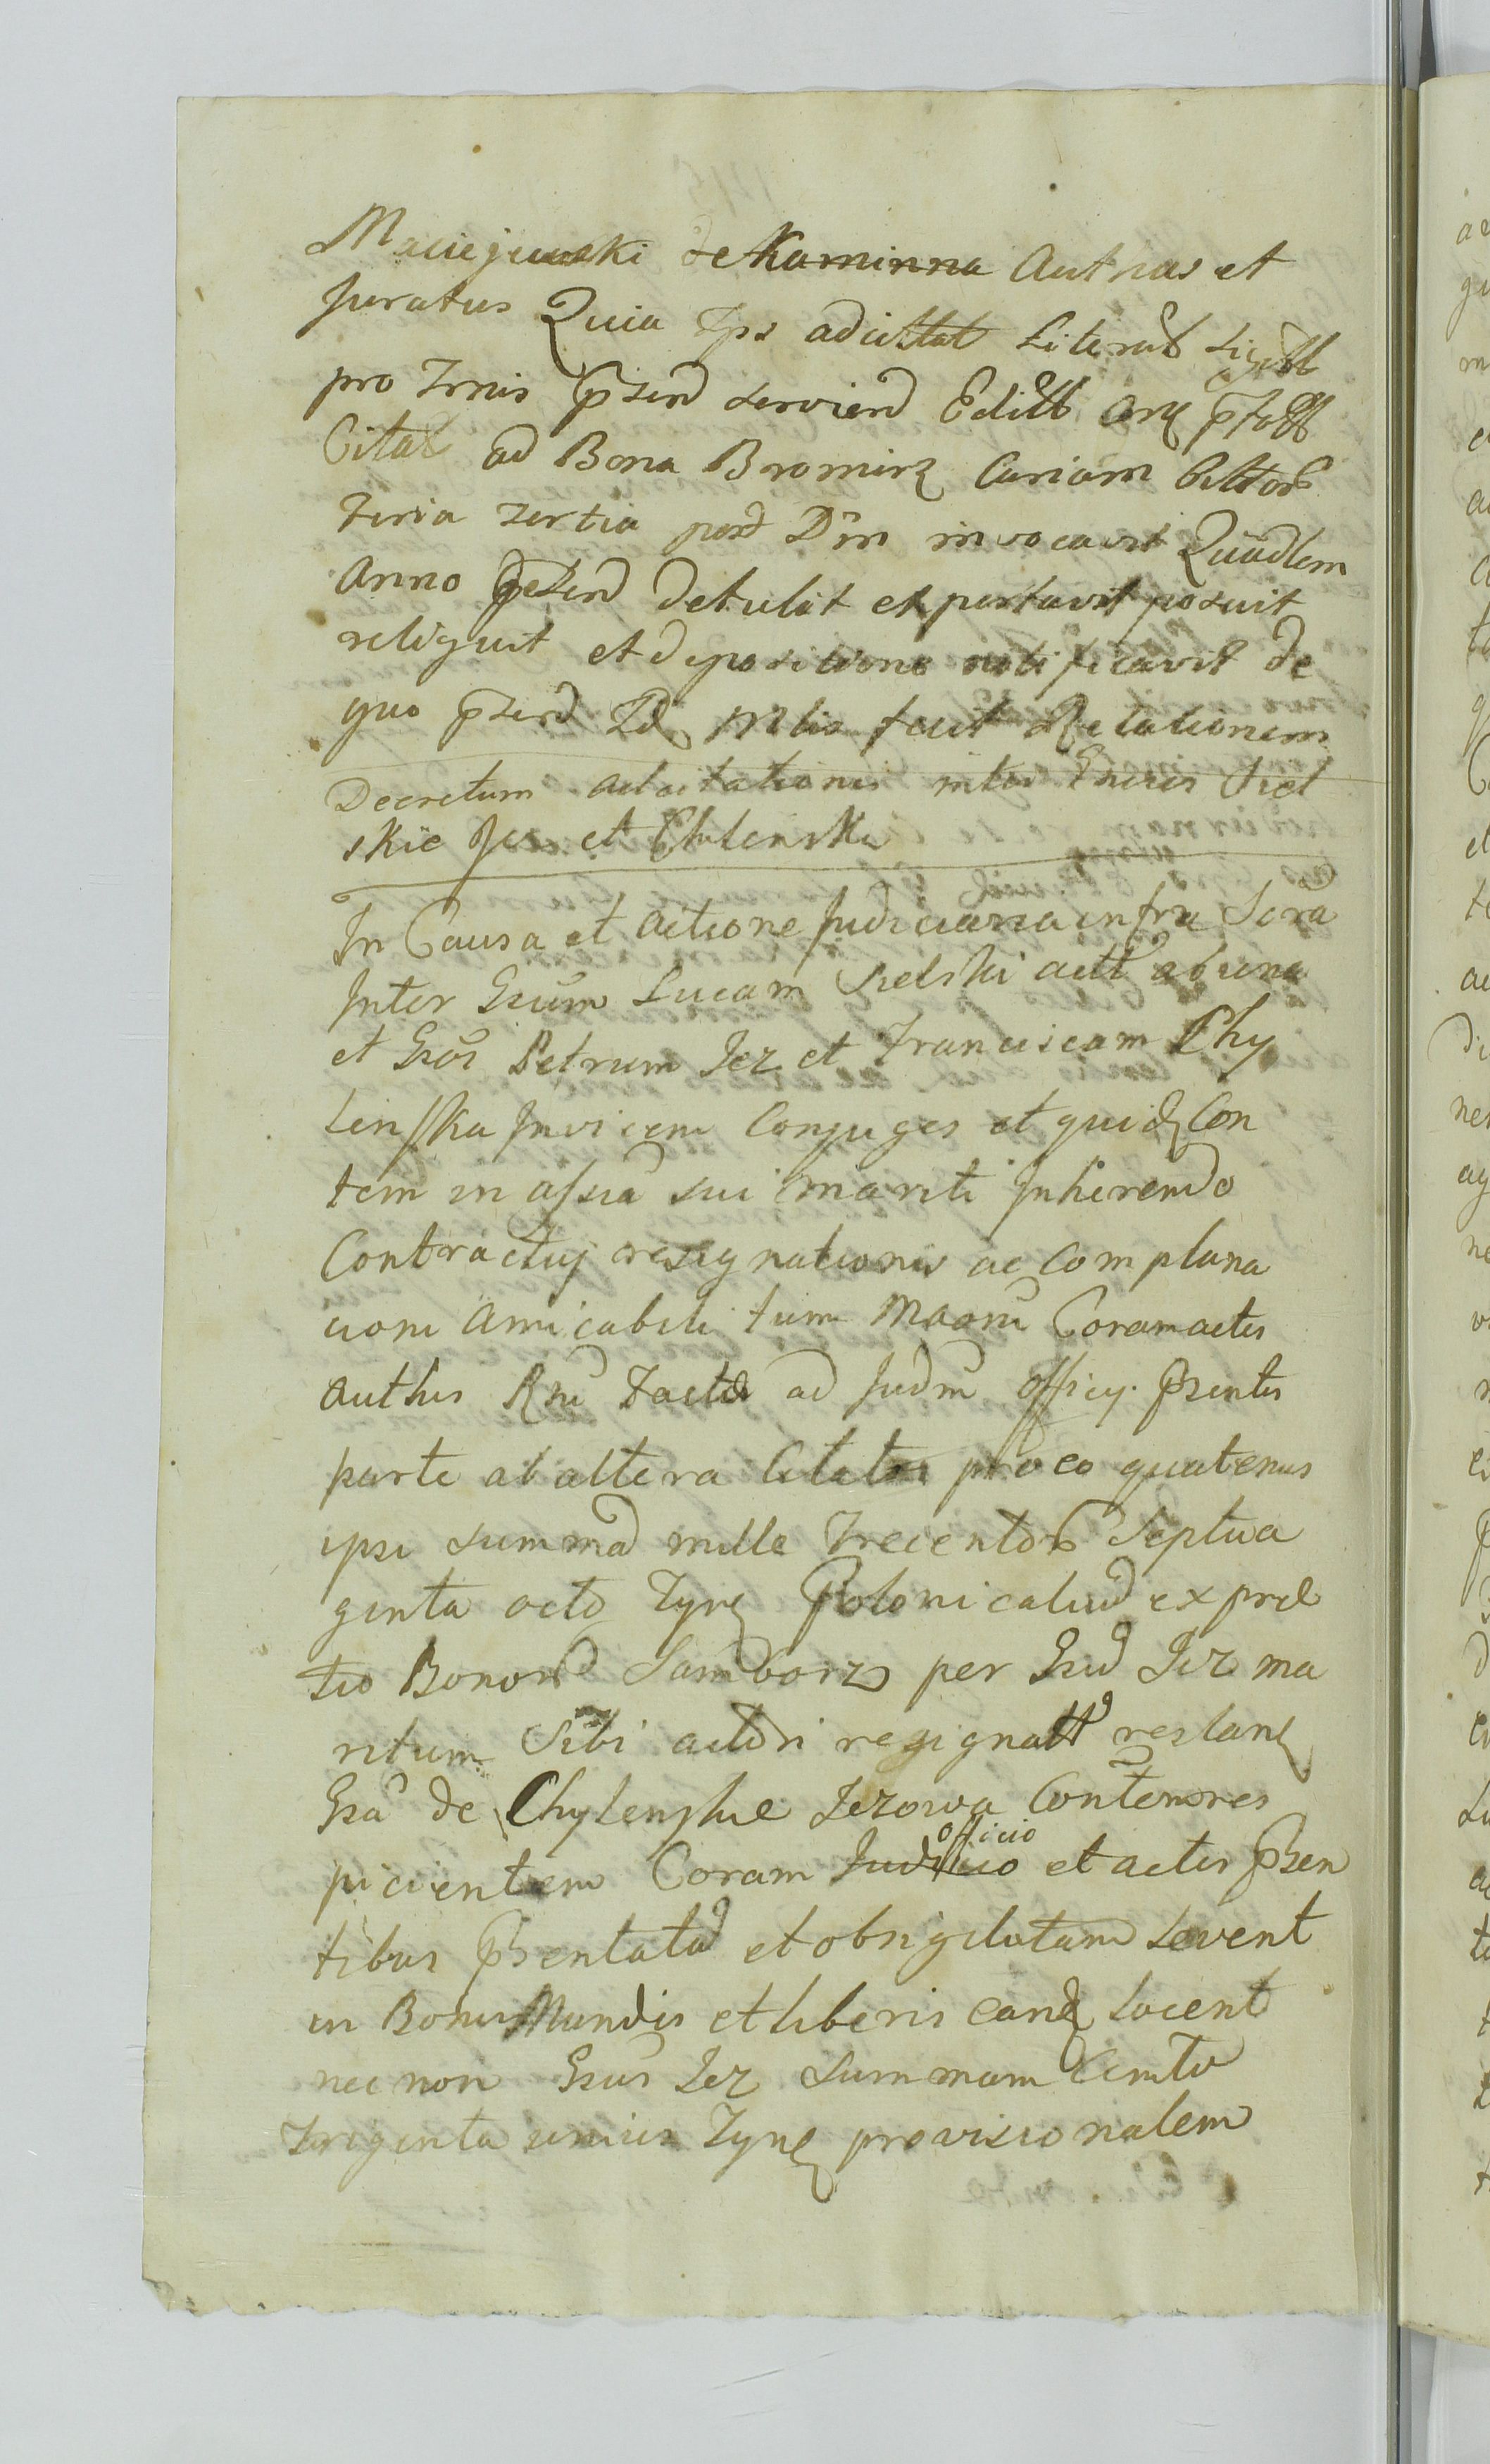 Maciejewski de Kaminna Authus et
Juratus Quia Ips adcittat Literas Sigill
pro Trnis psend serviend Editt Arq
Citat ad Bona Bromirz Curiam
Feria tertia post Dm invocavit Quadlem
Anno psend detulit et portavit posuit
reliquit et depositione notificavit de
quo psend Idq Mlis fecit Relationem
Decretum adcitationis inter Gneros Siel
skie Jez et Chlenska
In Causa et actione Judiciaria infra Scra
Inter Gsum Lucam Sielski actt ab una
et Gsos Petrum Jez et Franciscam Chy
lenska Invicem Conjuges et quidq Con
tem in assia sui mariti Inherendo
Contractuj resignationis ac complana
cioni amicabili tum Maoni Coram actis
authis Rni factis ad Judm officy psentis
parte ab altera Citatos pro eo quatenus
ipsi summa mille Trecentor Septua
ginta octo Fynq Polonicaliud ex pre
tio Bonor Samborz per Gsud Jez ma
ritum Sibi actori resignatt restanq
Gsa de Chylenskie Jezowa Contemores
picientem Coram Judicio officio et actis psen
tibus psentatd et obsigilatam Levent
in Bonis Mundis et liberis eandq locent
nec non Gsus Jez summam Cento
Triginta unius Fynq provisionalem